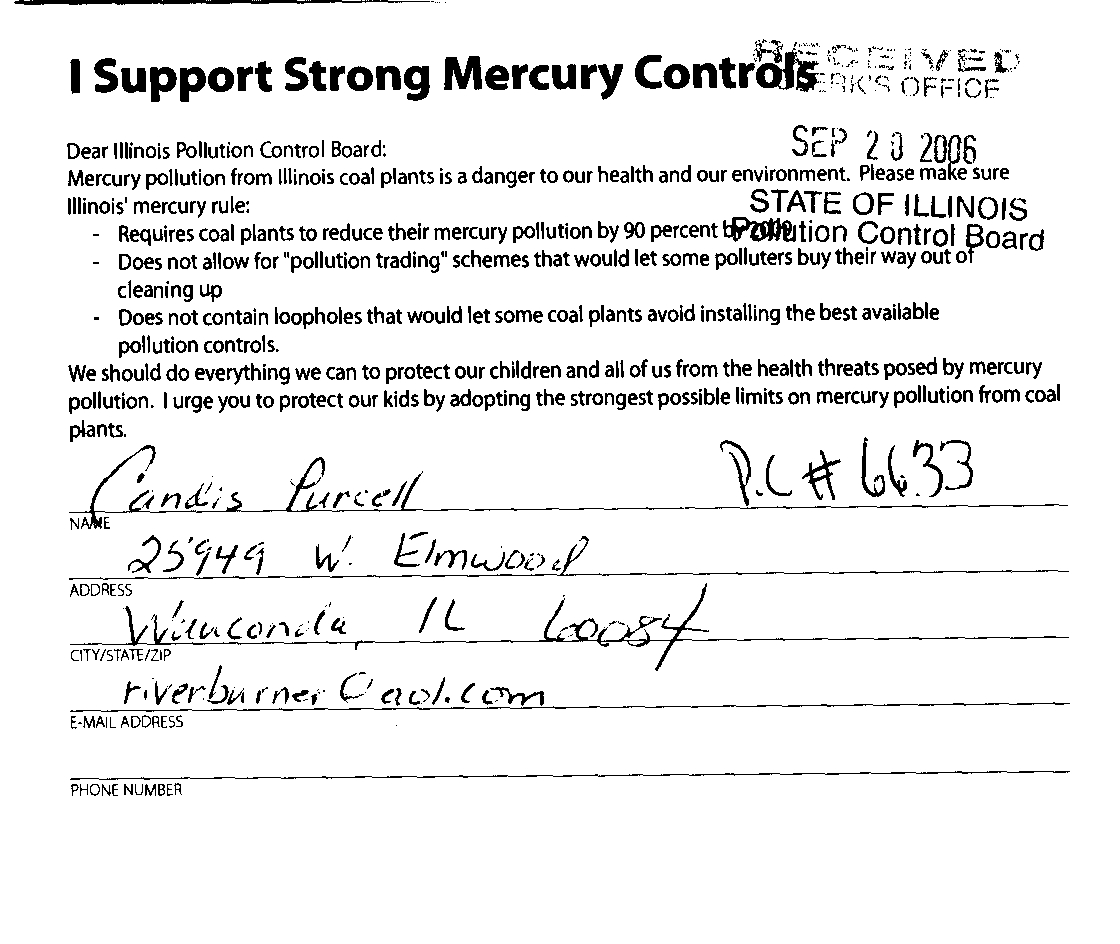 I Support Strong Mercury Controls
RECEIVED
CLERK'S OFFICE
SEP 20 2006
STATE OF ILLINOIS
Pollution Control Board
Dear Illinois Pollution Control Board:
Mercury pollution from Illinois coal plants is a danger to our health and our environment. Please make sure
Illinois' mercury rule:
- Requires coal plants to reduce their mercury pollution by 90 percent by
- Does not allow for "pollution trading" schemes that would let some polluters buy their way out of
cleaning up
- Does not contain loopholes that would let some coal plants avoid installing the best available
pollution controls.
We should do everything we can to protect our children and all of us from the health threats posed by mercury
pollution. I urge you to protect our kids by adopting the strongest possible limits on mercury pollution from coal
plants.
P.C # 6633
Candis Purcell
NAME
25949 W. Elmwood
ADDRESS
Wauconda, IL 60084
CITY/STATE/ZIP
riverburner@aol.com
E-MAIL ADDRESS
PHONE NUMBER